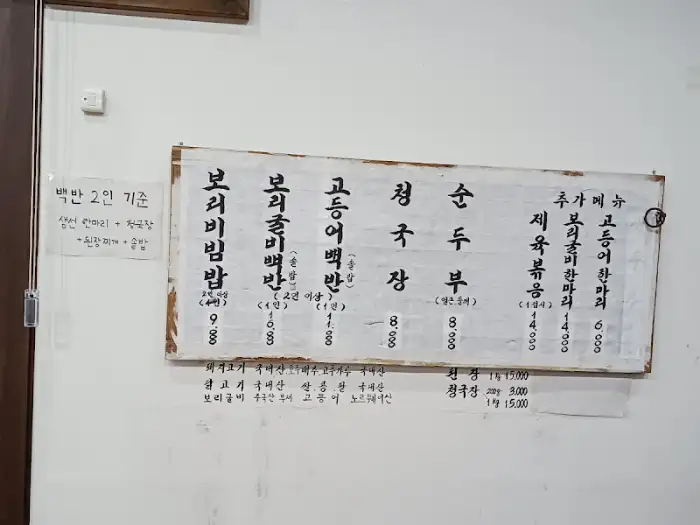 백반 2인 기준
생선 한마리 + 청국장
+ 된장찌개 + 솥밥
보리비빔밥
2인 이상
9.000
보리굴비백반
(솥밥)
(1인)
16.000
(2인 이상)
고등어백반
(솥밥)
(1인)
11.000
청국장
8.000
순두부
8.000
추가메뉴
제육볶음
14.000
보리굴비한마리
14.000
고등어한마리
6.000
돼지고기 국내산. 고추가루 국내산
닭고기 국내산 쌀. 콩. 국내산
보리굴비 중국산 부세 고등어 노르웨이산
된장 1kg 15,000
청국장 200g 3,000
1kg 15,000